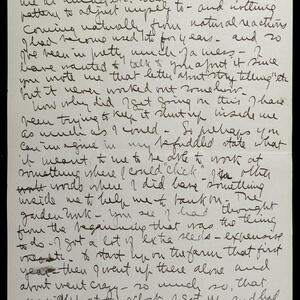 me at
pattern to adjust myself to - and nothing
coming naturally from natural reactions
I had become used to for years - and so
I've been in pretty much of a mess - I
have wanted to talk to you about it since
you wrote me that letter about story telling etc
but it never worked out somehow.
Now why did I get going on this, I have
been trying to keep it shut up inside me
as much as I could. - So perhaps you
can imagine in my befuddled state what
it meant to me to be able to work at
something where I could "click". In other
words where I did have something
inside me to help me to bank on. The
garden work. - You see I had thought
from the beginning that was the thing
to do - I got a lot of extra seeds - expensive
to start up on the farm that first
year - then I went up there alone and
about went crazy - so much so, that